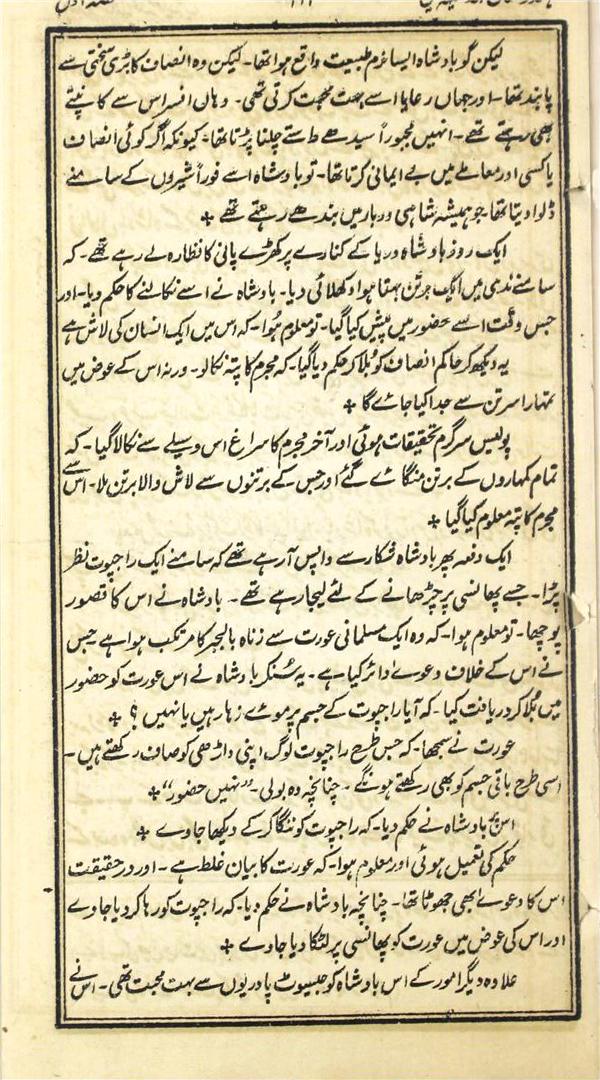 لیکن گو بادشاہ ایسا نرم طبیعت واقع ہوا تھا۔ لیکن وہ انصاف کا بڑی سختی سے
پابند تھا۔ اور جہاں رعایا اسے بہت محبت کرتی تھی۔ وہاں افسر اس سے کانپتے
بھی رہتے تھے۔ انہیں مجبوراً سیدھے راستے چلنا پڑتا تھا۔ کیونکہ اگر کوئی انصاف
یا کسی اور معاملے میں بے ایمانی کرتا تھا۔ تو بادشاہ اسے فوراً شیروں کے سامنے
ڈلوا دیتا تھا۔ جو ہمیشہ شاہی دربار میں بندھے رہتے تھے +
ایک روز بادشاہ دریا کے کنارے پر کھڑے پانی کا نظارہ لے رہے تھے۔ کہ
سامنے ندی میں ایک برتن بہتا ہوا دکھلائی دیا۔ بادشاہ نے اسے نکالنے کا حکم دیا۔ اور
جس وقت اسے حضور میں پیش کیا گیا۔ تو معلوم ہُوا۔ کہ اس میں ایک انسان کی لاش ہے
یہ دیکھ کر حاکم انصاف کو بُلا کر حکم دیا گیا۔ کہ مجرم کا پتہ نکالو۔ ورنہ اس کے عوض میں
تمہارا سر تن سے جدا کیا جائے گا +
پولیس سرگرم تحقیقات ہوئی اور آخر مجرم کا سراغ اس وسیلے سے نکالا گیا۔ کہ
تمام کمہاروں کے برتن منگائے گئے اور جس کے برتنوں سے لاش والا برتن ملا۔ اس سے
مجرم کا پتہ معلوم کیا گیا +
ایک دفعہ پھر بادشاہ شکار سے واپس آ رہے تھے کہ سامنے ایک راجپوت نظر
پڑا۔ جسے پھانسی پر چڑھانے کے لئے لیجا رہے تھے۔ بادشاہ نے اس کا قصور
پوچھا۔ تو معلوم ہوا۔ کہ وہ ایک مسلمانی عورت سے زناہ بالجبر کا مرتکب ہوا ہے جس
نے اس کے خلاف دعوےٰ دائر کیا ہے۔ یہ سُنکر بادشاہ نے اس عورت کو حضور
میں بُلا کر دریافت کیا۔ کہ آیا راجپوت کے جسم پر موئے زہار ہیں یا نہیں ؟ +
عورت نے سمجھا۔ کہ جس طرح راجپوت لوگ اپنی داڑھی کو صاف رکھتے ہیں۔
اسی طرح باقی جسم کو بھی رکھتے ہونگے۔ چنانچہ وہ بولی۔ "نہیں حضور" +
اس پر بادشاہ نے حکم دیا۔ کہ راجپوت کو ننگا کر کے دیکھا جاوے +
حکم کی تعمیل ہوئی اور معلوم ہوا۔ کہ عورت کا بیان غلط ہے۔ اور درحقیقت
اس کا دعوےٰ بھی جھوٹا تھا۔ چنانچہ بادشاہ نے حکم دیا۔ کہ راجپوت کو رہا کر دیا جاوے
اور اس کی عوض میں عورت کو پھانسی پر لٹکا دیا جاوے +
علاوہ دیگر امور کے اس بادشاہ کو جیسوٹ پادریوں سے بہت محبت تھی۔ اس نے